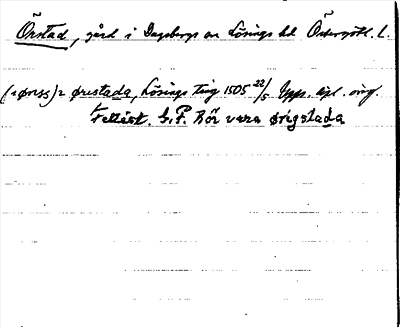 Örstad, gård i Dagsbergs sn Lösings hd Östergötl. l.
(i ønss) 2 ørestada, Lösings ting 1505 22/5 Upps. kpl. orig.
Felläst. G.F. Bör vara ørigstada